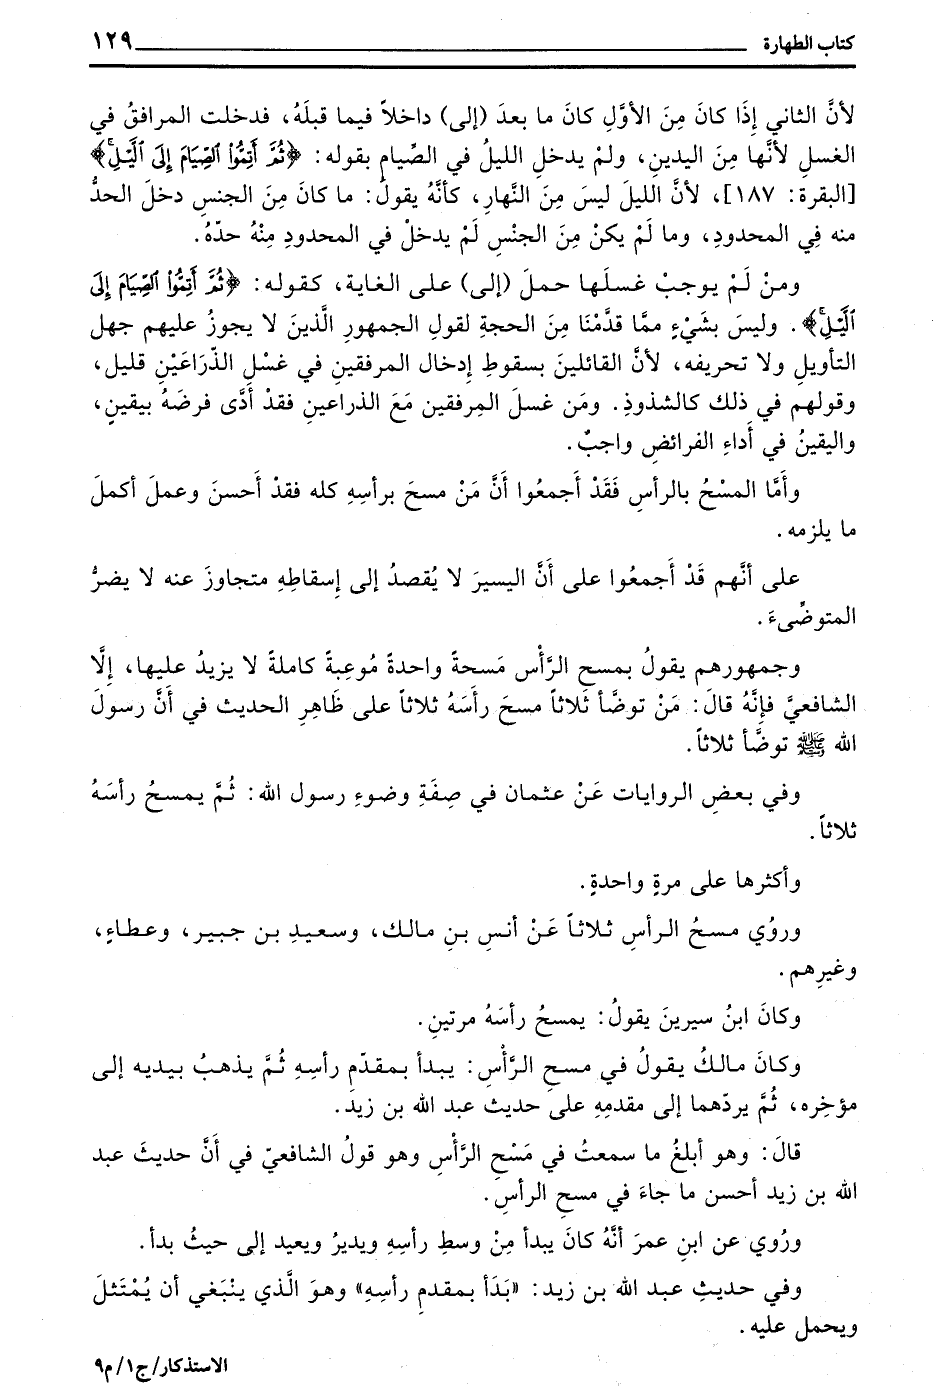 كتاب الطهارة ١٢٩
لأنَّ الثاني إذَا كانَ مِنَ الأوَّلِ كانَ ما بعدَ (إلى) داخلاً فيما قبلَهُ، فدخلت المرافقُ في
الغسلِ لأنَّها مِنَ اليدينِ، ولمْ يدخلِ الليلُ في الصِّيام بقوله: ﴿ثُمَّ أَتِمُّوا۟ ٱلصِّيَامَ إِلَى ٱلَّيْلِۚ﴾
[البقرة: ١٨٧]، لأنَّ الليلَ ليسَ مِنَ النَّهارِ، كأنَّهُ يقولُ: ما كانَ مِنَ الجنسِ دخلَ الحدُّ
منه فِي المحدودِ، وما لَمْ يكنْ مِنَ الجنْسِ لَمْ يدخلْ في المحدودِ مِنْهُ حدّهُ.
ومنْ لَمْ يوجبْ غسلَها حملَ (إلى) على الغاية، كقوله: ﴿ثُمَّ أَتِمُّوا۟ ٱلصِّيَامَ إِلَى
ٱلَّيْلِۚ﴾. وليسَ بشَيْءٍ ممَّا قدَّمْنَا مِنَ الحجةِ لقولِ الجمهورِ الَّذينَ لا يجوزُ عليهم جهل
التأويلِ ولا تحريفه، لأنَّ القائلينَ بسقوطِ إدخال المرفقينِ في غسْلِ الذّرَاعَيْنِ قليل،
وقولهم في ذلك كالشذوذِ. ومَن غسلَ المِرفقين مَعَ الذراعينِ فقدْ أدَّى فرضَهُ بيقينٍ،
واليقينُ في أداءِ الفرائضِ واجبٌ.
وأمَّا المسْحُ بالرأسِ فَقَدْ أجمعُوا أنَّ مَنْ مسحَ برأسِهِ كله فقدْ أحسنَ وعملَ أكملَ
ما يلزمه.
على أنَّهم قَدْ أجمعُوا على أنَّ اليسيرَ لا يُقصدُ إلى إسقاطِهِ متجاوزَ عنه لا يضرُّ
المتوضِّىءَ.
وجمهورهم يقولُ بمسحِ الرَّأْسِ مَسحةً واحدةً مُوعِبةً كاملةً لا يزيدُ عليها، إلَّا
الشافعيَّ فإنَّهُ قالَ: مَنْ توضَّأ ثَلاثاً مسحَ رأسَهُ ثلاثاً على ظَاهِرِ الحديث في أنَّ رسولَ
الله ﷺ توضَّأ ثلاثاً.
وفي بعضِ الروايات عَنْ عثمان في صِفَةِ وضوءِ رسول الله: ثُمَّ يمسحُ رأسَهُ
ثلاثاً.
وأكثرها على مرةٍ واحدةٍ.
وروُي مسحُ الرأسِ ثلاثاً عَنْ أنسِ بنِ مالك، وسعيدِ بن جبير، وعطاءٍ،
وغيرِهم.
وكانَ ابنُ سيرينَ يقولُ: يمسحُ رأسَهُ مرتينِ.
وكانَ مالكُ يقولُ في مسحِ الرَّأْسِ: يبدأ بمقدّمِ رأسِهِ ثُمَّ يذهبُ بيديه إلى
مؤخِره، ثُمَّ يردّهما إلى مقدمِهِ على حديث عبد الله بن زيدَ.
قالَ: وهو أبلغُ ما سمعتُ في مَسْحِ الرَّأْسِ وهو قولُ الشافعيّ في أنَّ حديثَ عبد
الله بن زيد أحسن ما جاءَ في مسحِ الرأسِ.
ورُوي عن ابنِ عمرَ أنَّهُ كانَ يبدأ مِنْ وسطِ رأسِهِ ويديرُ ويعيد إلى حيثُ بدأ.
وفي حديثِ عبد الله بن زيد: «بَدَأ بمقدمِ رأسِهِ» وهوَ الَّذي ينْبَغي أن يُمْتَثلَ
ويحمل عليه.
الاستذكار/ج١/م٩